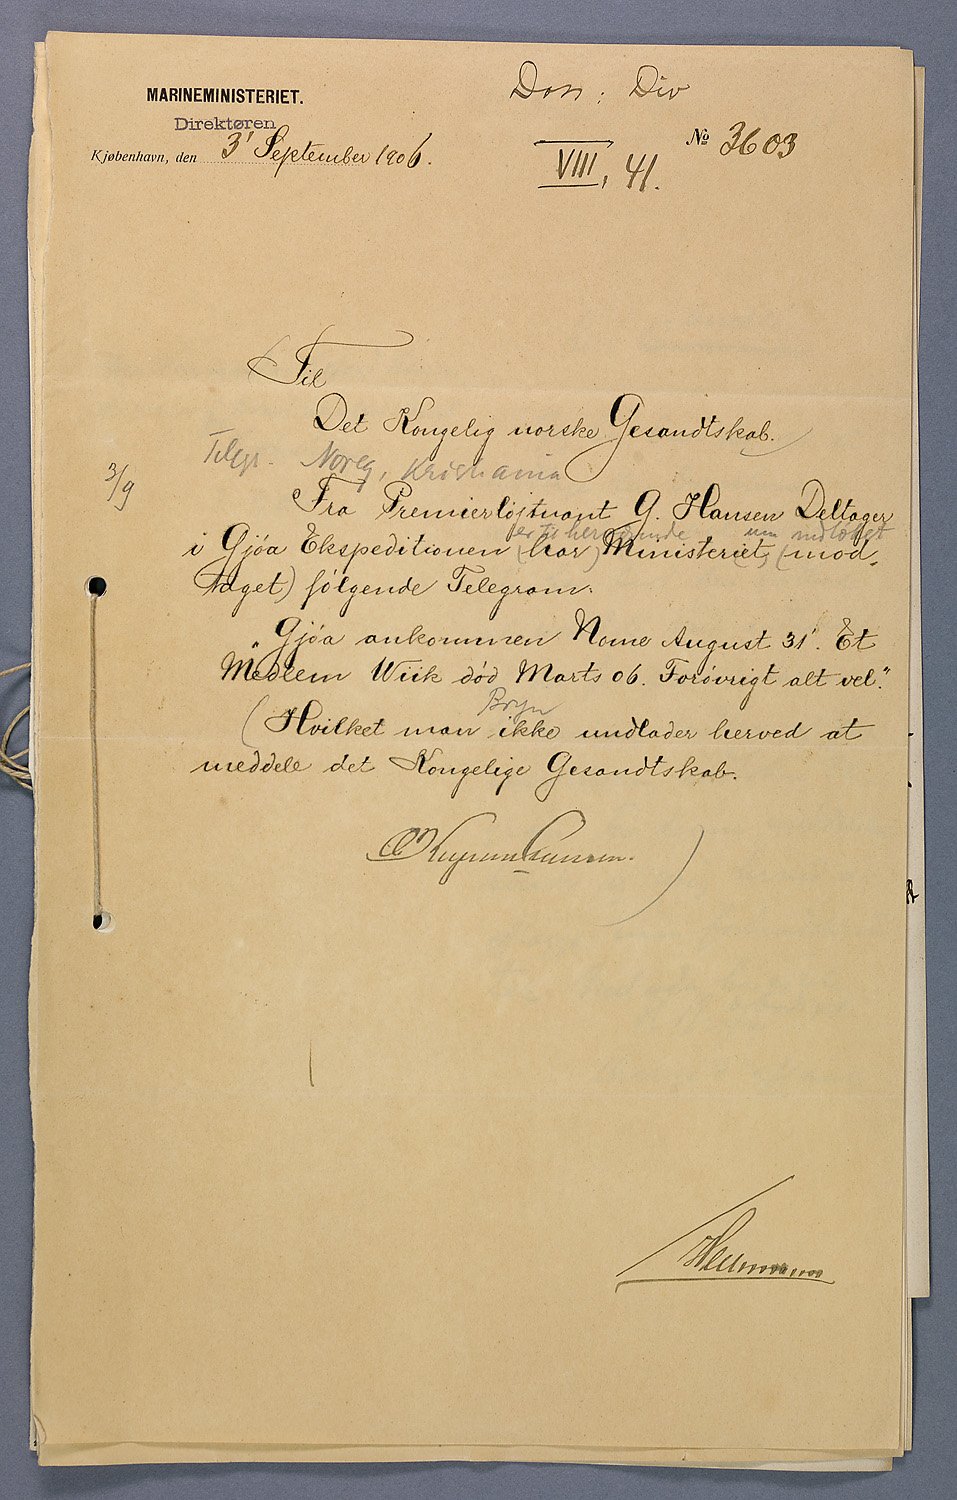 MARINEMINISTERIET.
Direktøren
Kjøbenhavn, den 3' September 1906.
Dos: Div
VIII, 41.
No 3603
Til
Det Kongelig norske Gesandtskab.
Telegr. Noreg, Kristiania
3/9
Fra Premierløjtnant G. Hansen Deltager
er til herværende indløbet
i Gjøa Ekspeditionen (har) Ministeriet, (mod-
taget) følgende Telegram:
"Gjøa ankommen Nome August 31'. Et
Medlem Wiik død Marts 06. Forøvrigt alt vel."
(Hvilket man ikke undlader herved at
meddele det Kongelige Gesandtskab.
)